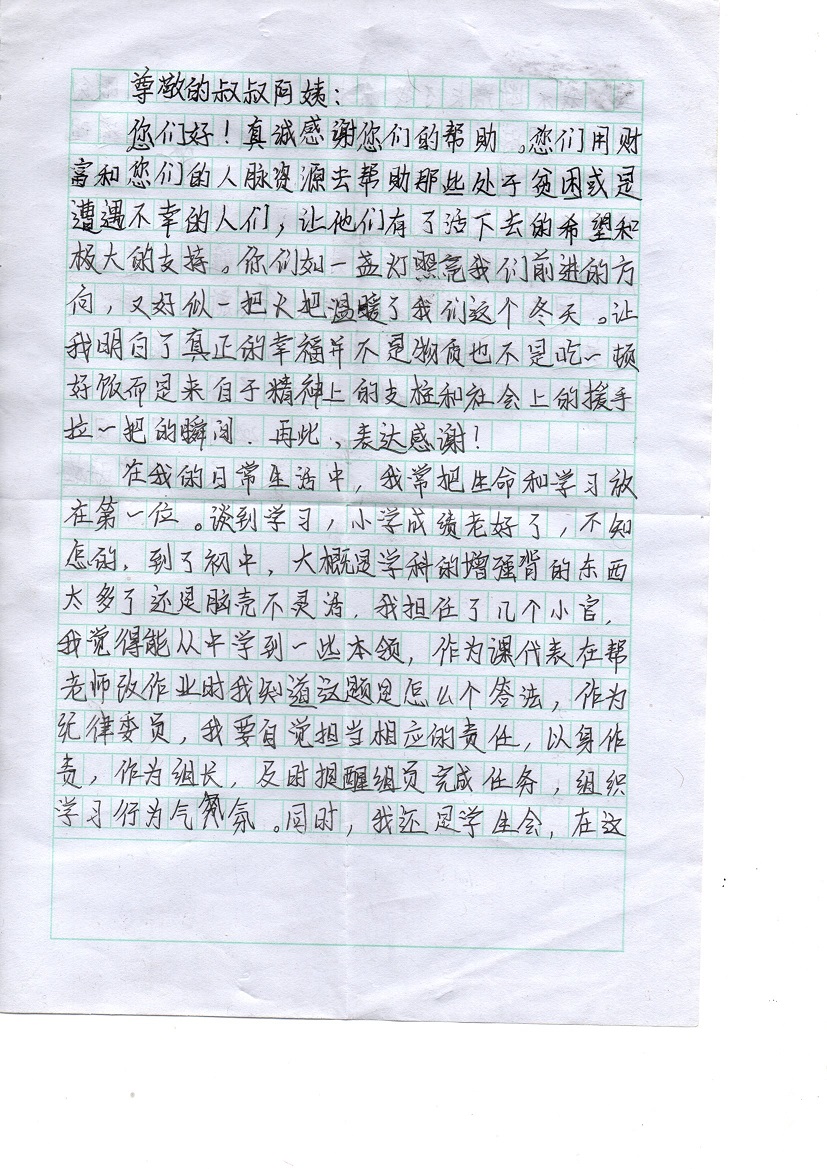 尊敬的叔叔阿姨：
您们好！真诚感谢您们的帮助。您们用财
富和您们的人脉资源去帮助那些处于贫困或是
遭遇不幸的人们，让他们有了活下去的希望和
极大的支持。你们如一盏灯照亮我们前进的方
向，又好似一把火把温暖了我们这个冬天。让
我明白了真正的幸福并不是物质也不是吃一顿
好饭而是来自于精神上的支柱和社会上的援手
拉一把的瞬间．再此，表达感谢！
在我的日常生活中，我常把生命和学习放
在第一位。谈到学习，小学成绩老好了，不知
怎的，到了初中，大概是学科的增强背的东西
太多了还是脑壳不灵活，我担任了几个小官，
我觉得能从中学到一些本领，作为课代表在帮
老师改作业时我知道这题是怎么个答法，作为
纪律委员，我要自觉担当相应的责任，以身作
责，作为组长，及时提醒组员完成任务，组织
学习行为气氛。同时，我还是学生会，在这